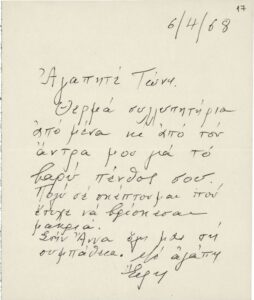 17
6/4/68
Ἀγαπητέ Τώνη.
Θερμά συλυπητήρια
ἀπό μένα κε ἀπό τόν
ἄντρα μου γιά τό
βαρύ πένθος σου.
Πολύ σέ σκέπτομαι πού
ἔτυχε νά βρίσκεσαι
μακριά.
Στήν Ἄννα ὅλη μας τή
συμπάθεια. Μέ ἀγάπη